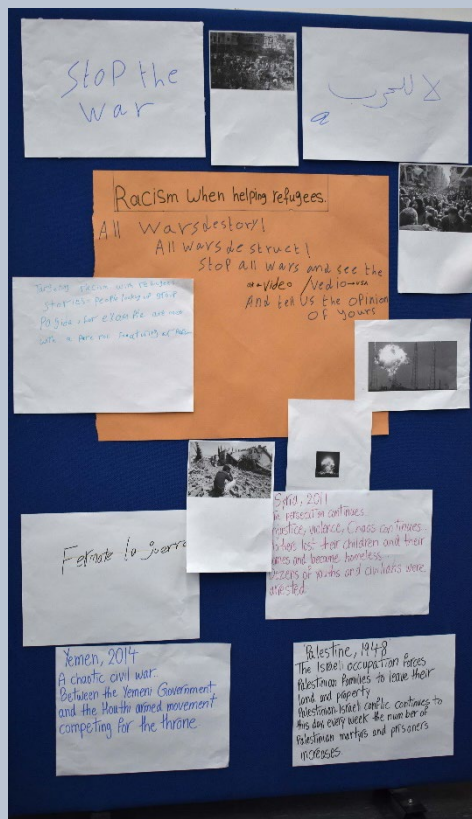 Stop the
war
لا للحرب
Racism when helping refugees.
All Warsdestory!
All wars destruct!
Stop all wars and see the
video /vedio
And tell us the opinion
of yours
racism with refugees
stories people
for example
with a
Fermate la guerra
Syria, 2011
persecution continues
injustice, violence, Chaos continues
lost their children and their
homes and became homeless.
Dozens of youths and civilians were
arrested
Yemen, 2014
A chaotic civil war.
Between the Yemeni Government
and the Houthi armed movement
competing for the throne
Palestine, 1948
The Israeli occupation forces
Palestinian families to leave their
land and property
Palestinian-Israeli conflict continues to
this day, every week the number of
Palestinian martyrs and prisoners
increases